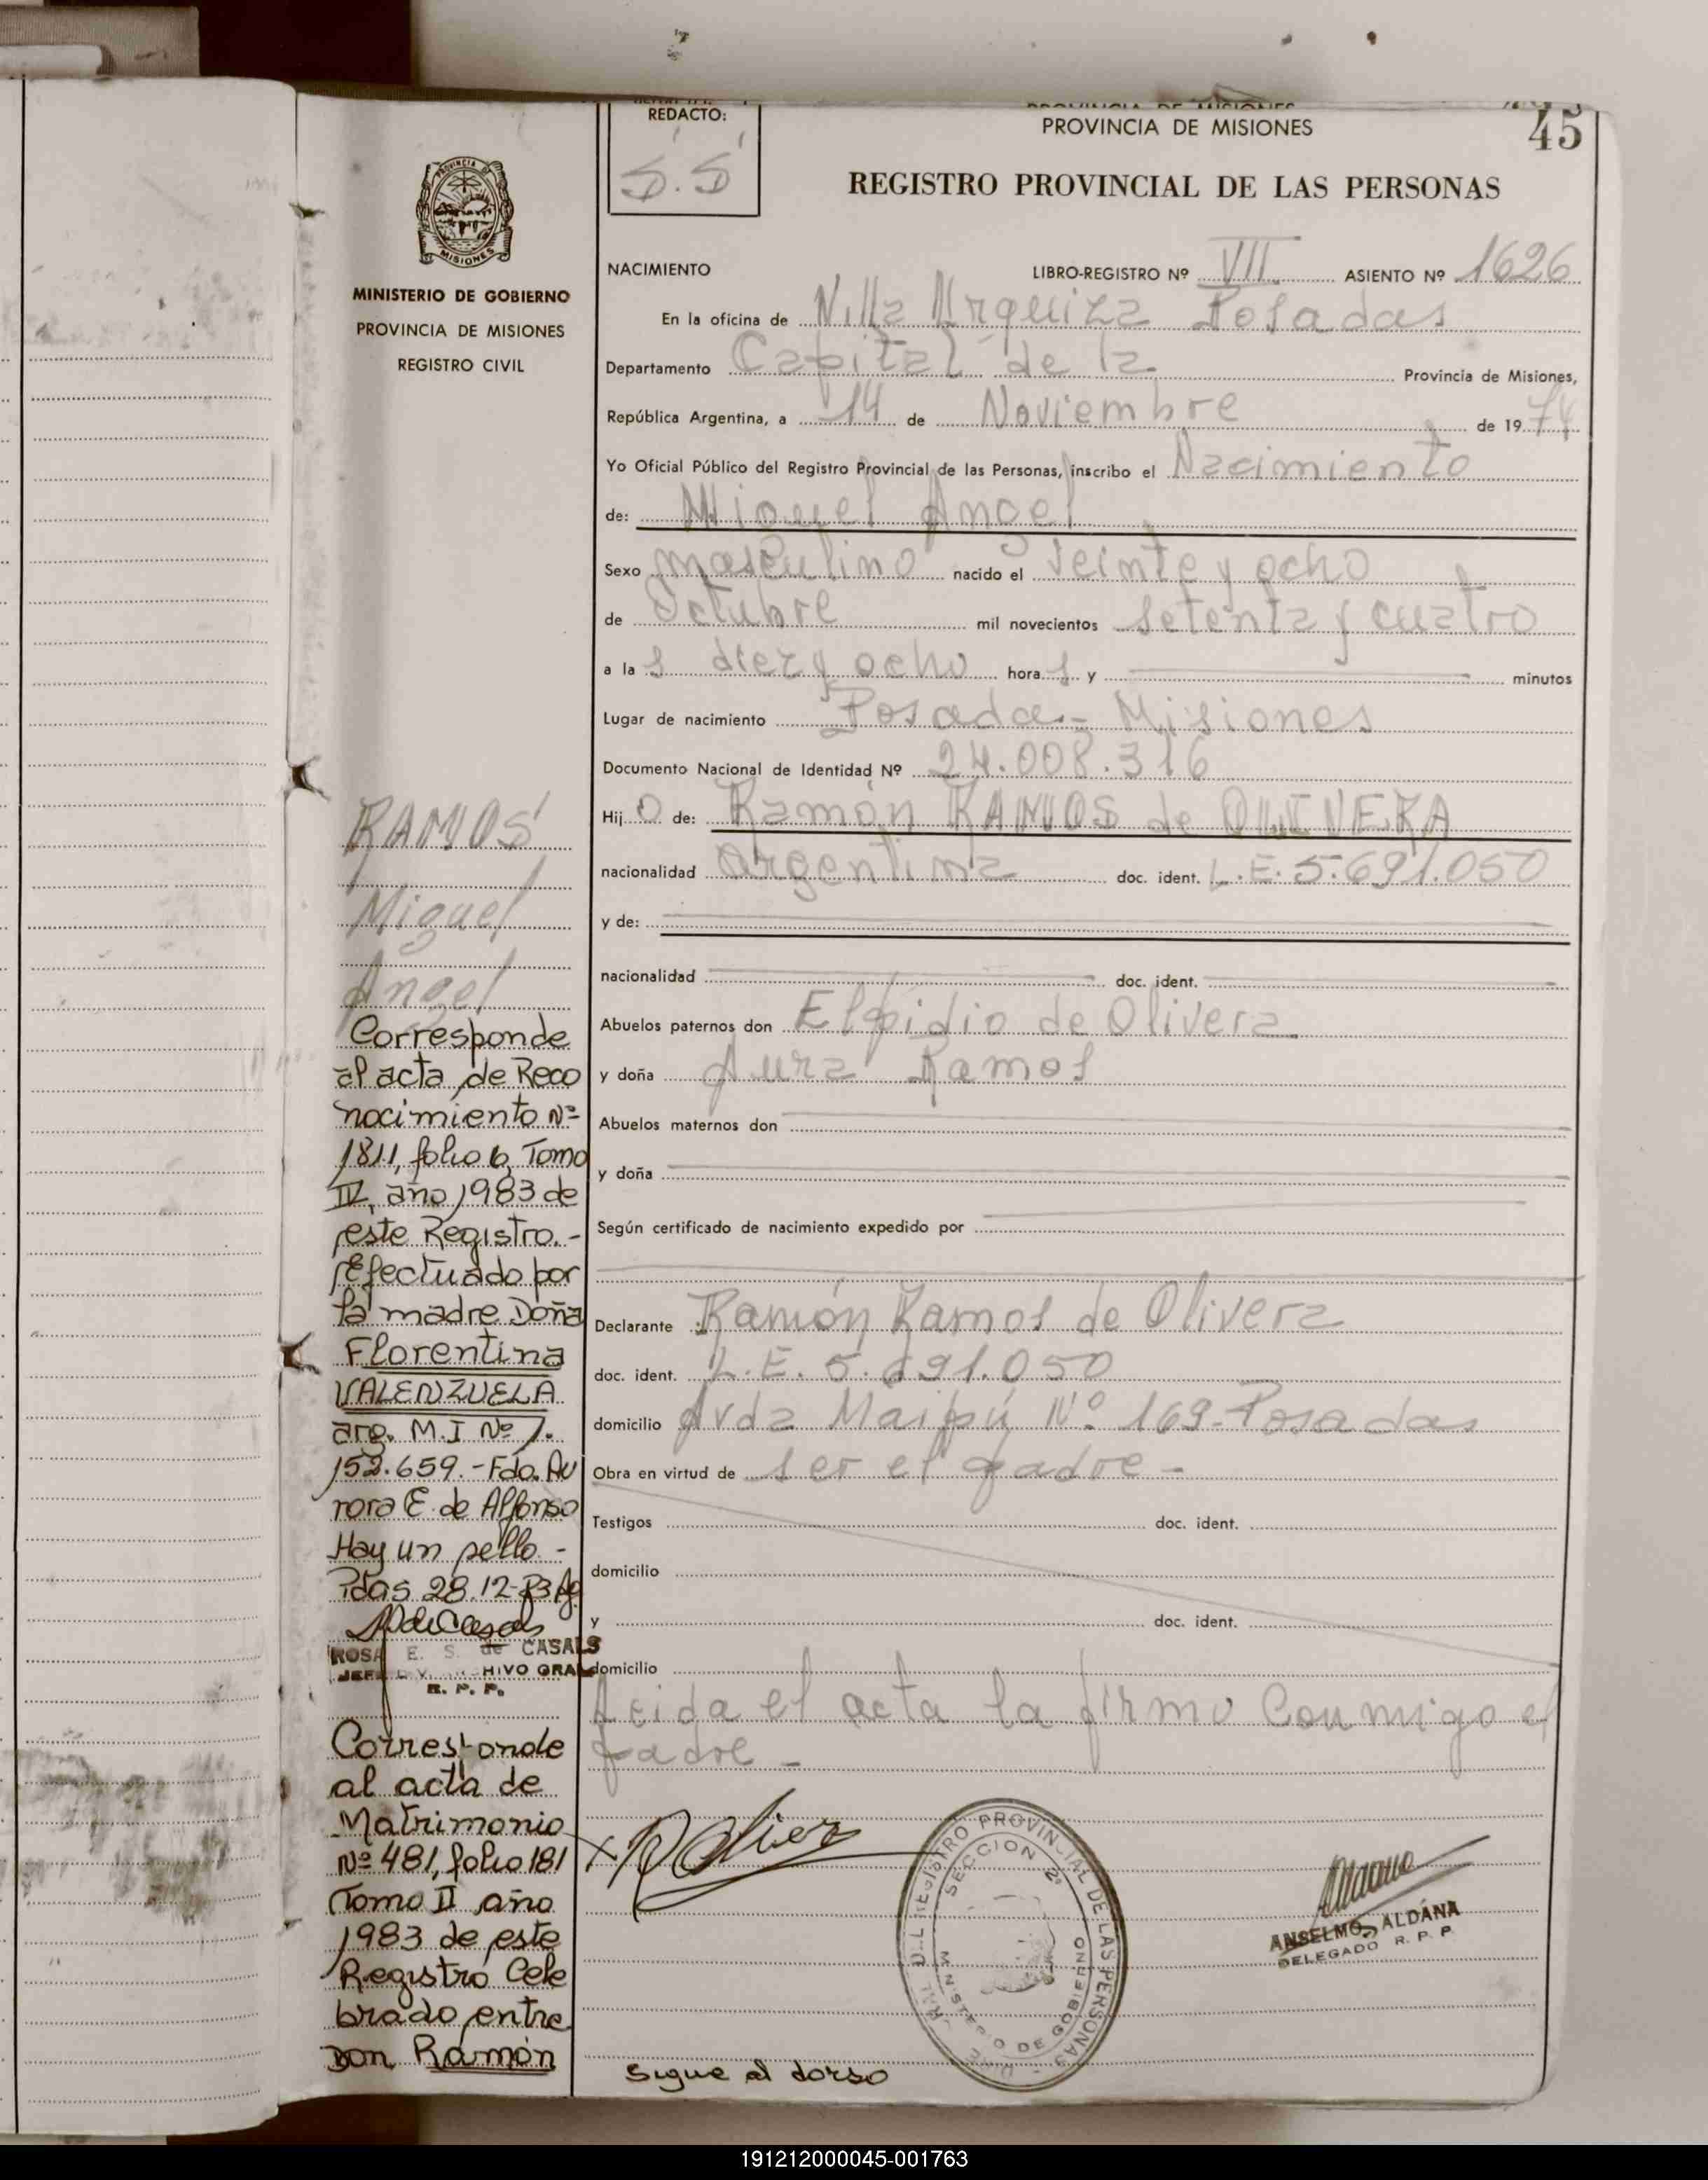 REDACTO:
S.S
PROVINCIA DE MISIONES
PROVINCIA DE MISIONES
45
REGISTRO PROVINCIAL DE LAS PERSONAS
MISIONES
MINISTERIO DE GOBIERNO
PROVINCIA DE MISIONES
REGISTRO CIVIL
NACIMIENTO LIBRO-REGISTRO Nº VII ASIENTO Nº 1626
En la oficina de Villa Urquiza Posadas
Departamento Capital de la Provincia de Misiones,
República Argentina, a 14 de Noviembre de 1974
Yo Oficial Público del Registro Provincial de las Personas, inscribo el Nacimiento
de: Miguel Angel
Sexo masculino nacido el veinte y ocho
de Octubre mil novecientos setenta y cuatro
a las diez y ocho horas y minutos
Lugar de nacimiento Posadas - Misiones
Documento Nacional de Identidad Nº 24.008.316
Hijo de: Ramón RAMOS de OLIVERA
nacionalidad argentina doc. ident. L.E. 5.691.050
y de:
nacionalidad doc. ident.
Abuelos paternos don Elpidio de Olivera
y doña Aura Ramos
Abuelos maternos don
y doña
Según certificado de nacimiento expedido por
Declarante Ramón Ramos de Olivera
doc. ident. L.E. 5.691.050
domicilio Avda Maipú Nº 169 - Posadas
Obra en virtud de ser el padre -
Testigos doc. ident.
domicilio
y doc. ident.
domicilio
Leida el acta la firmo conmigo el
padre -
REGISTRO PROVINCIAL DE LAS PERSONAS
SECCION 2ª
MINISTERIO DE GOBIERNO
ANSELMO S. ALDANA
DELEGADO R. P. P.
Sigue al dorso
RAMOS
Miguel
Angel
Corresponde
al acta de Reco
nocimiento Nº
1811, folio 6, Tomo
IV, año 1983 de
este Registro.-
Efectuado por
la madre Doña
Florentina
VALENZUELA
arg. M.I Nº 7.
152.659.- Fdo. Au
rora E. de Alfonso
Hay un sello.-
Pdas 28.12-83
ROSA E. S. de CASALS
R. P. P.
Corresponde
al acta de
Matrimonio
Nº 481, folio 181
Tomo II año
1983 de este
Registro Cele
brado entre
Don Ramón
191212000045-001763